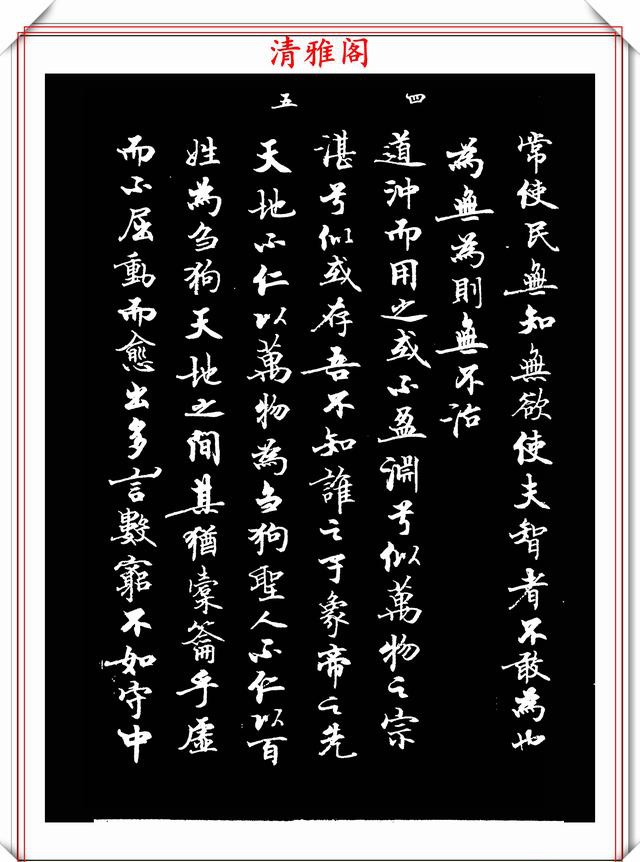 清雅阁
常使民無知無欲使夫智者不敢為也
為無為則無不治
四
道沖而用之或不盈淵兮似萬物之宗
湛兮似或存吾不知誰之子象帝之先
五
天地不仁以萬物為刍狗聖人不仁以百
姓為刍狗天地之間其猶橐籥乎虛
而不屈動而愈出多言數窮不如守中